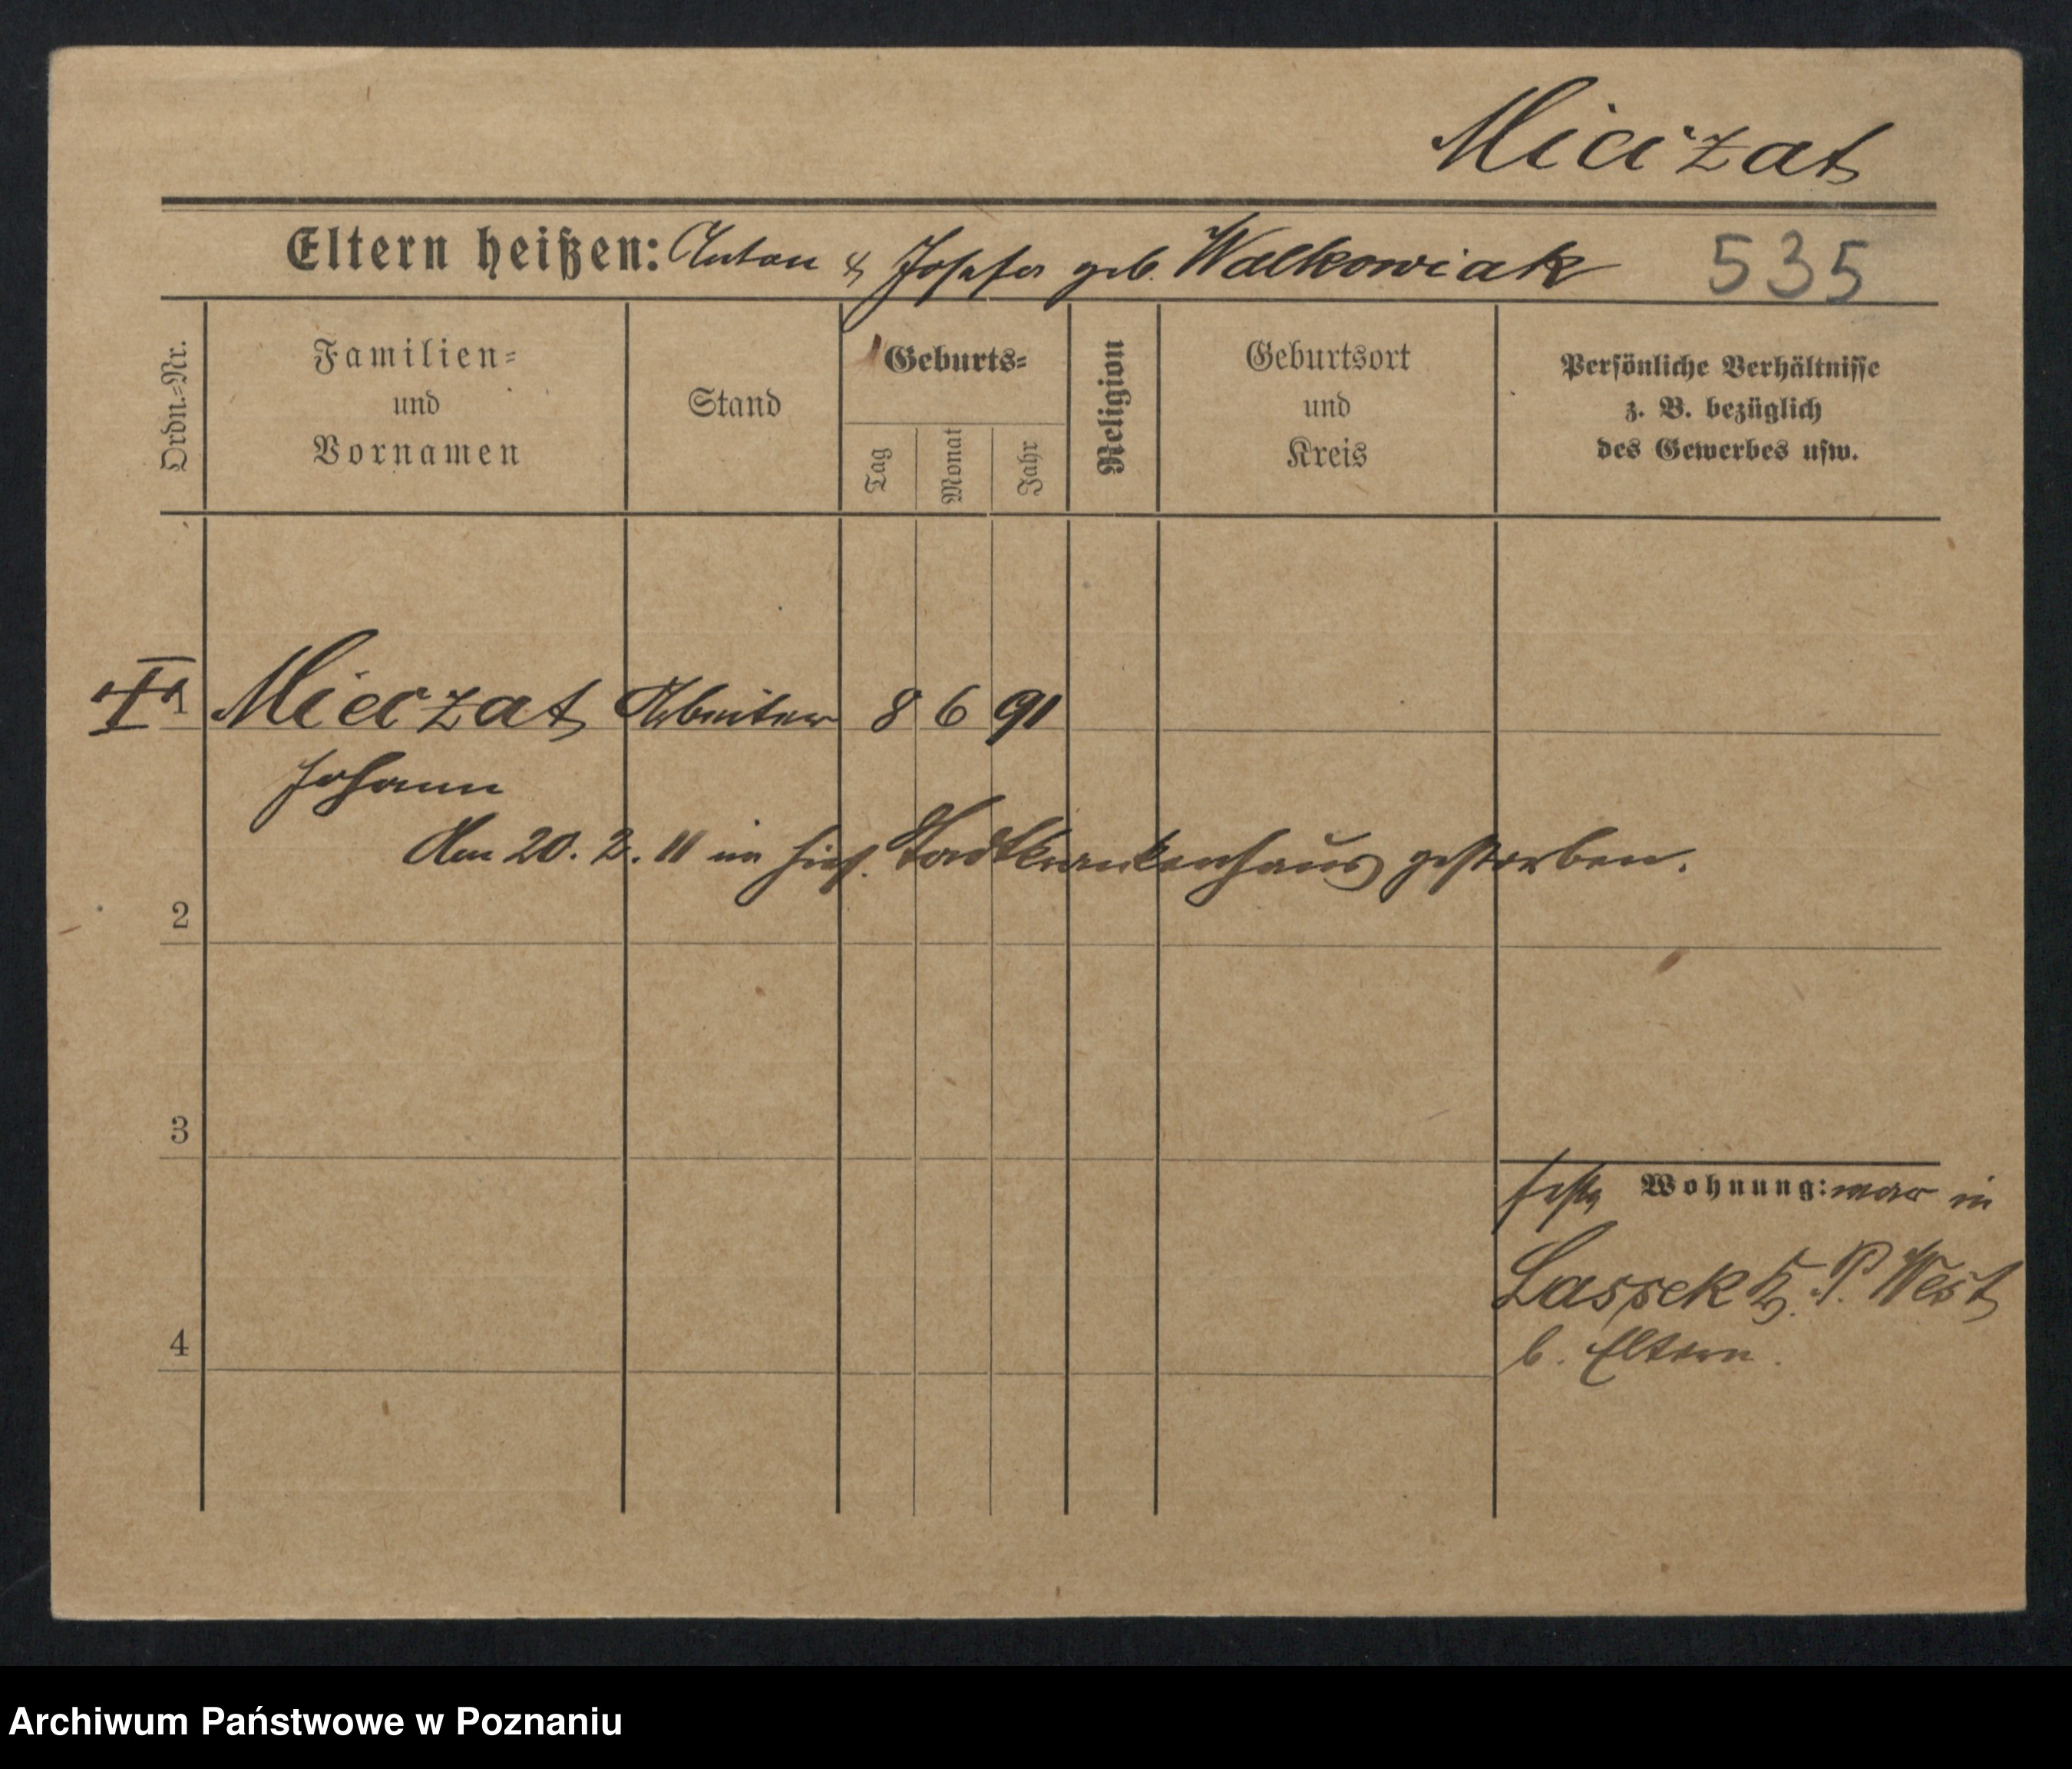 Micizat
Eltern heißen: Anton & Josefa geb. Walkowiak 535
Ordn.=Nr.
Familien=
und
Vornamen
Stand
Geburts=
Tag
Monat
Jahr
Religion
Geburtsort
und
Kreis
Persönliche Verhältnisse
z. B. bezüglich
des Gewerbes usw.
1 Mieczat Arbeiter 8 6 91
Johann
Am 20. 2. 11 im hies. Stadtkrankenhaus gestorben.
2
3
feste Wohnung: war in
Lassek K. P. West
b. Eltern.
4
Archiwum Państwowe w Poznaniu